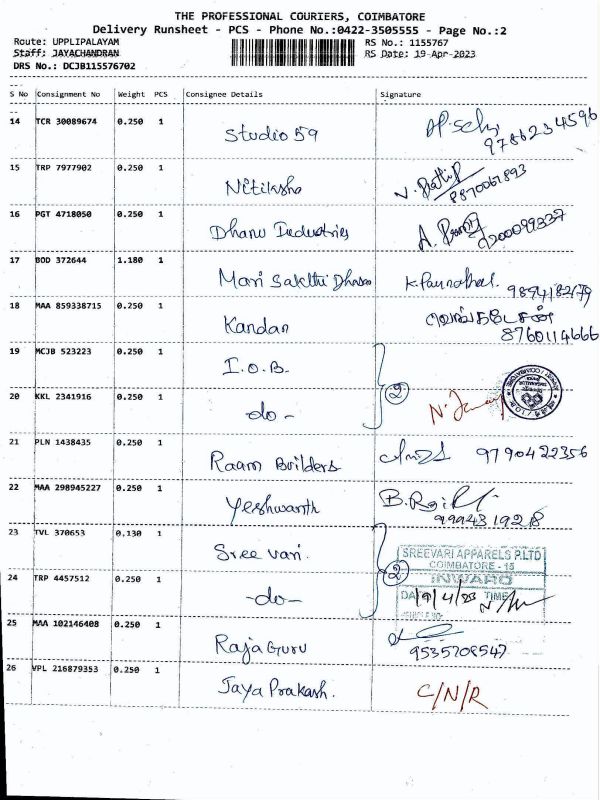 THE PROFESSIONAL COURIERS, COIMBATORE
Delivery Runsheet - PCS - Phone No.:0422-3505555 - Page No.:2
Route: UPPLIPALAYAM RS No.: 1155767
Staff: JAYACHANDRAN RS Date: 19-Apr-2023
DRS No.: DCJB115576702
S No Consignment No Weight PCS Consignee Details Signature
14 TCR 30089674 0.250 1 Studio 59 9786234596
15 TRP 7977902 0.250 1 Nitiksha 8870061893
16 PGT 4718050 0.250 1 Dhanu Industries
17 BOD 372644 1.180 1 Mari Sakthi Dharan 9894182179
18 MAA 859338715 0.250 1 Kandan வெங்கடேசன் 8760114666
19 MCJB 523223 0.250 1 I.O.B.
2
20 KKL 2341916 0.250 1 -do-
21 PLN 1438435 0.250 1 Raam Builders 9790422356
22 MAA 298945227 0.250 1 Yeshwanth 9994319218
23 TVL 370653 0.130 1 Sree vari.
SREEVARI APPARELS P.LTD
COIMBATORE - 15
2 INWARD
24 TRP 4457512 0.250 1 -do- DA 19/4/23 TIME
25 MAA 102146408 0.250 1 Raja Guru 9535708547
26 VPL 216879353 0.250 1 Jaya Prakash. C/N/R